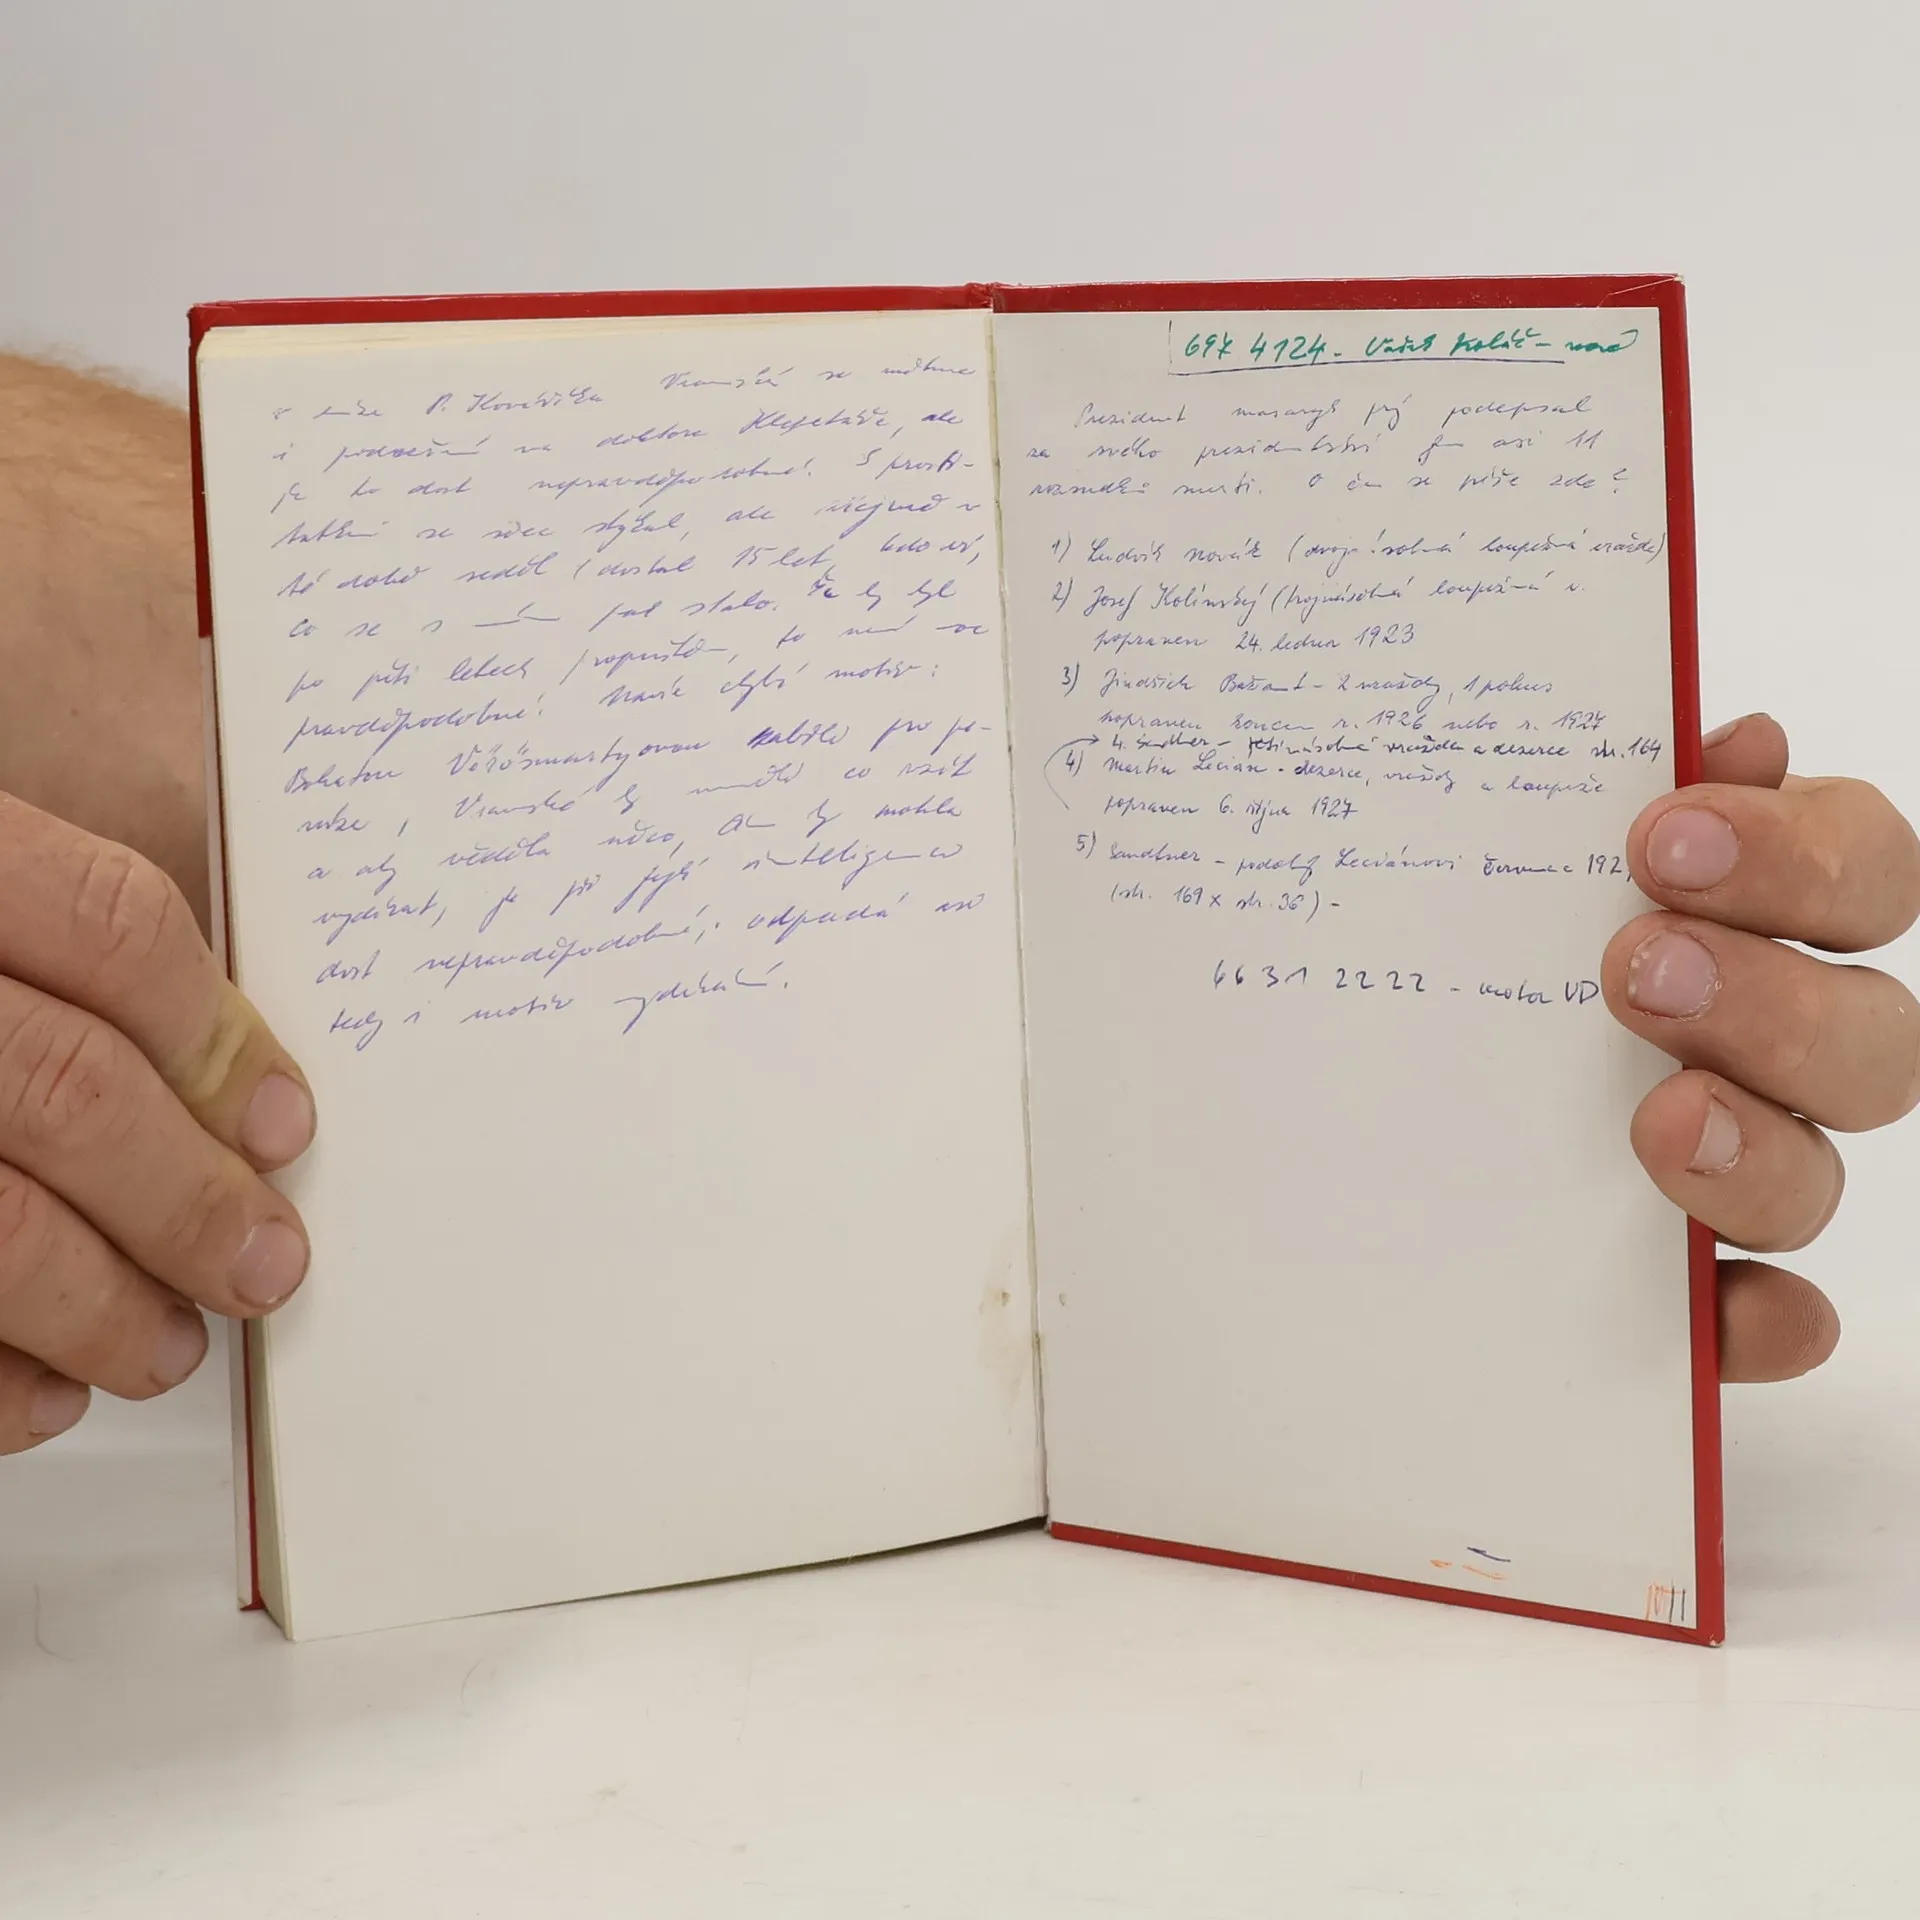 P. Kovářička Vranská se
i podezření na doktora Klepetáře, ale
je to dost nepravděpodobné. S prosti-
tutkami se sice stýkal, ale v
té době seděl (dostal 15 let, kdo ví,
co se s ním pak stalo. Že by byl
po pěti letech propuštěn, to není
pravděpodobné. Navíc chybí motiv:
Bohatou Vörösmartyovou zabil pro pe-
níze, Vranské by neměl co vzít
a aby věděla něco, čím by mohla
vydírat, je při její inteligenci
dost nepravděpodobné; odpadá
tedy i motiv vydírání.
697 4124 - Vašek Kolář -
Prezident Masaryk prý podepsal
za svého prezidentství jen asi 11
rozsudků smrti. O čem se píše zde?
1) Ludvík Novák (dvojnásobná loupežná vražda)
2) Josef Kolínský (trojnásobná loupežná v.
popraven 24. ledna 1923
3) Jindřich Bažant - 2 vraždy, 1 pokus
popraven koncem r. 1926 nebo r. 1927
4. vražda a dezerce str. 164
4) Martin Lecian - dezerce, vraždy a loupeže
popraven 6. října 1927
5) Sandtner - podobný Leciánovi 192
(str. 169 x str. 36) -
6631 2222 - VD